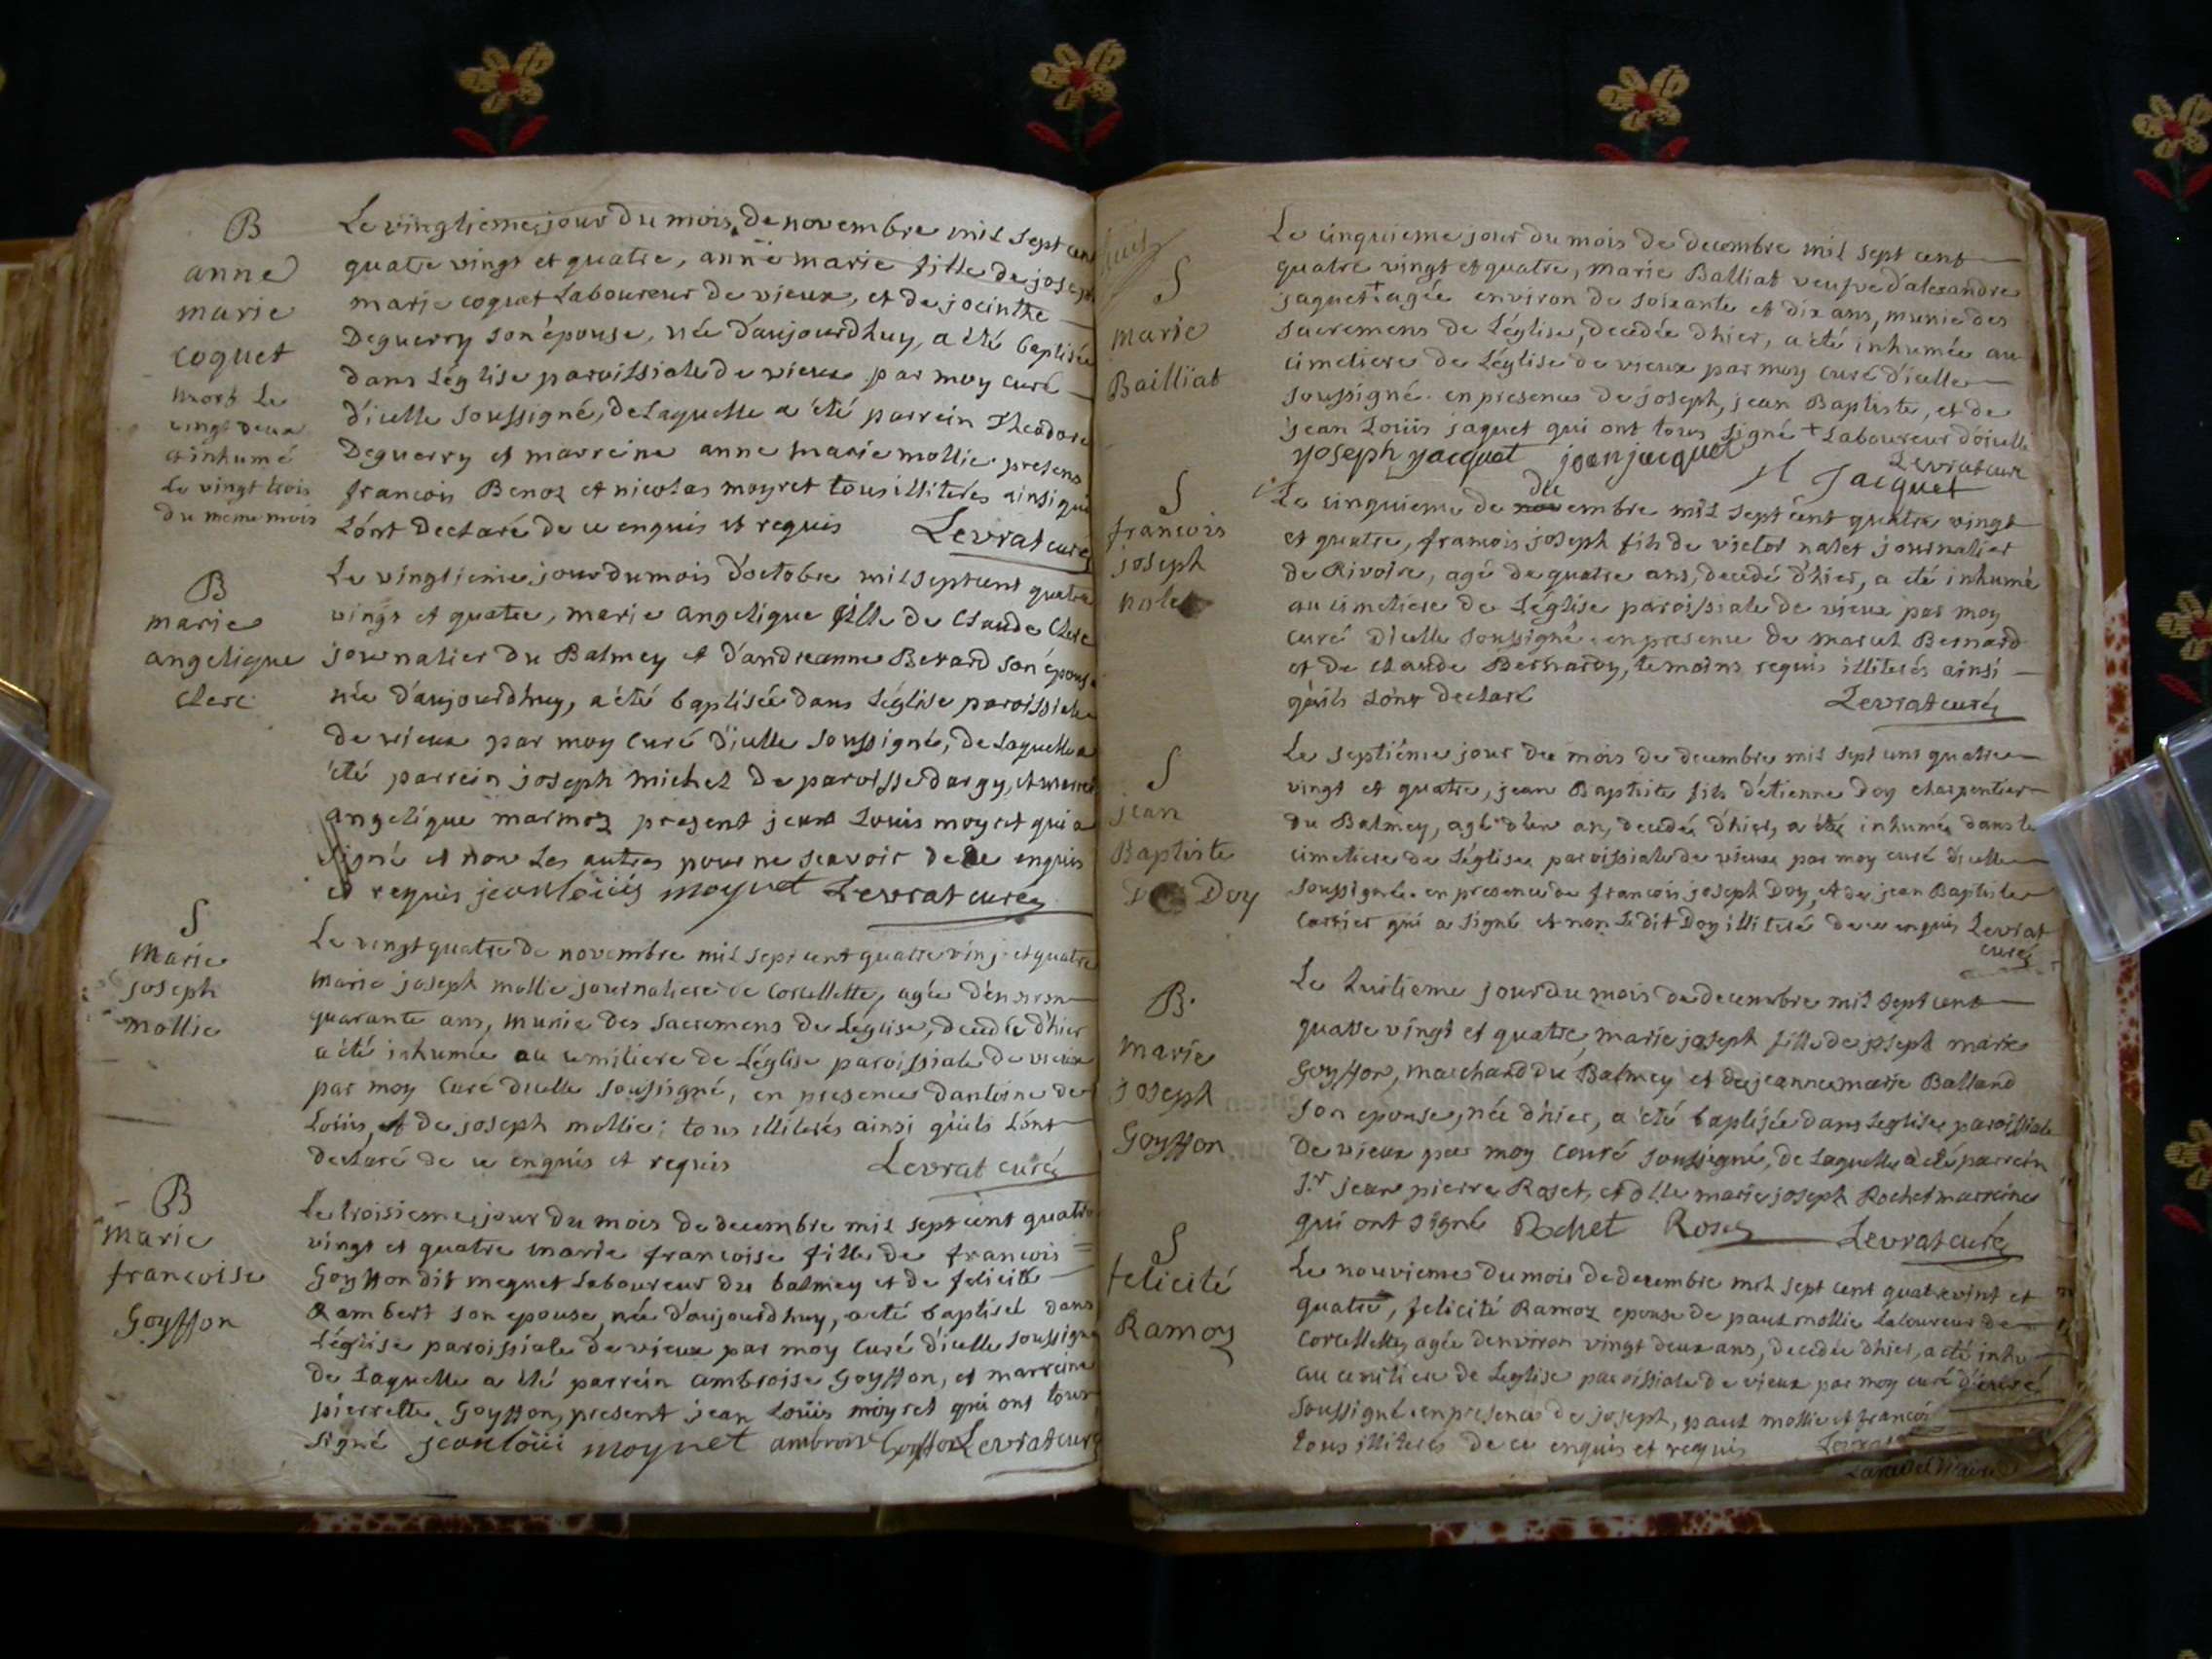 B
anne
marie
coquet
mort le
vingt deux
et inhumé
le vingt trois
du meme mois
Le vingtieme jour du mois de novembre mil sept cent
quatre vingt et quatre, anne marie fille de joseph
marie coquet Laboureur de vieux, et de jacinthe
Deguerry son épouse, née d'aujourdhuy, a été baptisée
dans L'église paroissiale de vieux par moy curé
d'icelle soussigné, de Laquelle a été parrein Theodore
Deguerry et marreine anne marie mollie presens
francois Benoz et nicolas moyret tous illiterés ainsi quils
L'ont declaré de ce enquis et requis Levrat curé
B
marie
angelique
Clerc
Le vingtieme jour du mois d'octobre mil sept cent quatre
vingt et quatre, marie angelique fille de Claude Clerc
journalier du Balmey et d'andreanne Berard son épouse
née d'aujourdhuy, a été baptisée dans L'église paroissiale
de vieux par moy curé d'icelle soussigné, de Laquelle a
été parrein joseph michel de paroisse dargy, et marreine
angelique marmoz present jean Louis moyret qui a
signé et non Les autres pour ne scavoir de ce enquis
et requis jean loüis moyret Levrat curé
S
marie
joseph
mollie
Le vingt quatre de novembre mil sept cent quatre vingt et quatre
marie joseph mollie journaliere de Corcellette, agée d'environ
quarante ans, munie des sacremens de L'église, decedée d'hier
a été inhumée au cimitiere de L'église paroissiale de vieux
par moy curé d'icelle soussigné, en presence dantoine de
Loüis, et de joseph mollie; tous illiterés ainsi qu'ils L'ont
declaré de ce enquis et requis Levrat curé
B
marie
francoise
Goyffon
Le troisieme jour du mois de decembre mil sept cent quatre
vingt et quatre marie francoise fille de francois
Goyffon dit meguet Laboureur du balmey et de felicité
Rambert son epouse, née d'aujourdhuy, a été baptisée dans
L'église paroissiale de vieux par moy curé d'icelle soussigné
de Laquelle a été parrein ambroise Goyffon, et marreine
pierrette Goyffon, present jean Loüis moyret qui ont tous
signé jean loüis moyret ambroise Goyffon Levrat curé
S
marie
Bailliat
Le cinquieme jour du mois de decembre mil sept cent
quatre vingt et quatre, marie Balliat veuve d'alexandre
jaquet + agée environ de soixante et dix ans, munie des
sacremens de L'église, decedée d'hier, a été inhumée au
cimetiere de L'église de vieux par moy curé d'icelle
soussigné. en presence de joseph, jean Baptiste, et de
jean Loüis jaquet qui ont tous signé + Laboureur d'icelle
yoseph yacquet jean jacquet Levrat curé
Jacquet
S
francois
joseph
nalet
Le cinquieme de decembre mil sept cent quatre vingt
et quatre, francois joseph fils de victor nalet journalier
de Rivoire, agé de quatre ans, decedé d'hier, a été inhumé
au cimetiere de L'église paroissiale de vieux par moy
curé d'icelle soussigné. en presence de marcel Bernard
et de claude Bernardy, temoins requis illiterés ainsi
qu'ils L'ont declaré Levrat curé
S
jean
Baptiste
Doy
Le septième jour du mois de decembre mil sept cent quatre
vingt et quatre, jean Baptiste fils d'étienne Doy charpentier
du Balmey, agé d'un an, decedé d'hier, a été inhumé dans le
cimetiere de L'église paroissiale de vieux par moy curé d'icelle
soussigné. en presence de francois joseph Doy, et de jean Baptiste
Carrier qui a signé et non Le dit Doy illiteré de ce enquis Levrat
curé
B.
marie
joseph
Goyffon
Le huitieme jour du mois de decembre mil sept cent
quatre vingt et quatre, marie joseph fille de joseph marie
Goyffon, marchand du Balmey et de jeanne marie Balland
son epouse, née d'hier, a été baptisée dans L'eglise paroissiale
de vieux par moy curé soussigné, de Laquelle a été parrein
Sr jean pierre Roset, et dlle marie joseph Rochet marreine
qui ont signé Rochet Roset Levrat curé
S
felicité
Ramoz
Le neuvieme du mois de decembre mil sept cent quatrevint et
quatre, felicité Ramoz epouse de paul mollie Laboureur de
Corcellette, agée denviron vingt deux ans, decedée d'hier, a été inhu
au cimitiere de L'eglise paroissiale de vieux par moy curé d'icelle
soussigné. en presence de joseph, paul mollie et francois
tous illiterés de ce enquis et requis Levrat